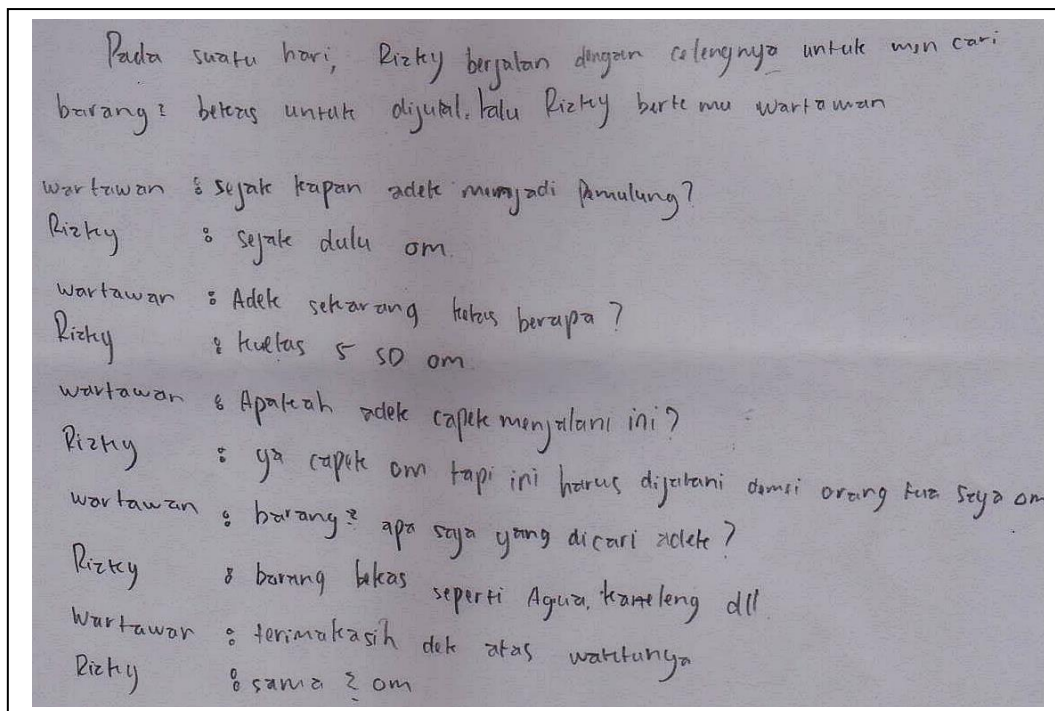 Pada suatu hari, Rizky berjalan dengan celengnya untuk men cari
barang2 bekas untuk dijual. lalu Rizky berte mu wartawan
wartawan : sejak kapan adek menjadi Pemulung?
Rizky : sejak dulu om.
wartawan : Adek sekarang kelas berapa?
Rizky : kuelas 5 SD om.
wartawan : Apakah adek capek menjalani ini?
Rizky : ya capek om tapi ini harus dijalani demsi orang tua saya om
wartawan : barang2 apa saja yang dicari adek?
Rizky : barang bekas seperti Aqua, kaneleng dll
Wartawan : terimakasih dek atas waktunya
Rizky : sama2 om